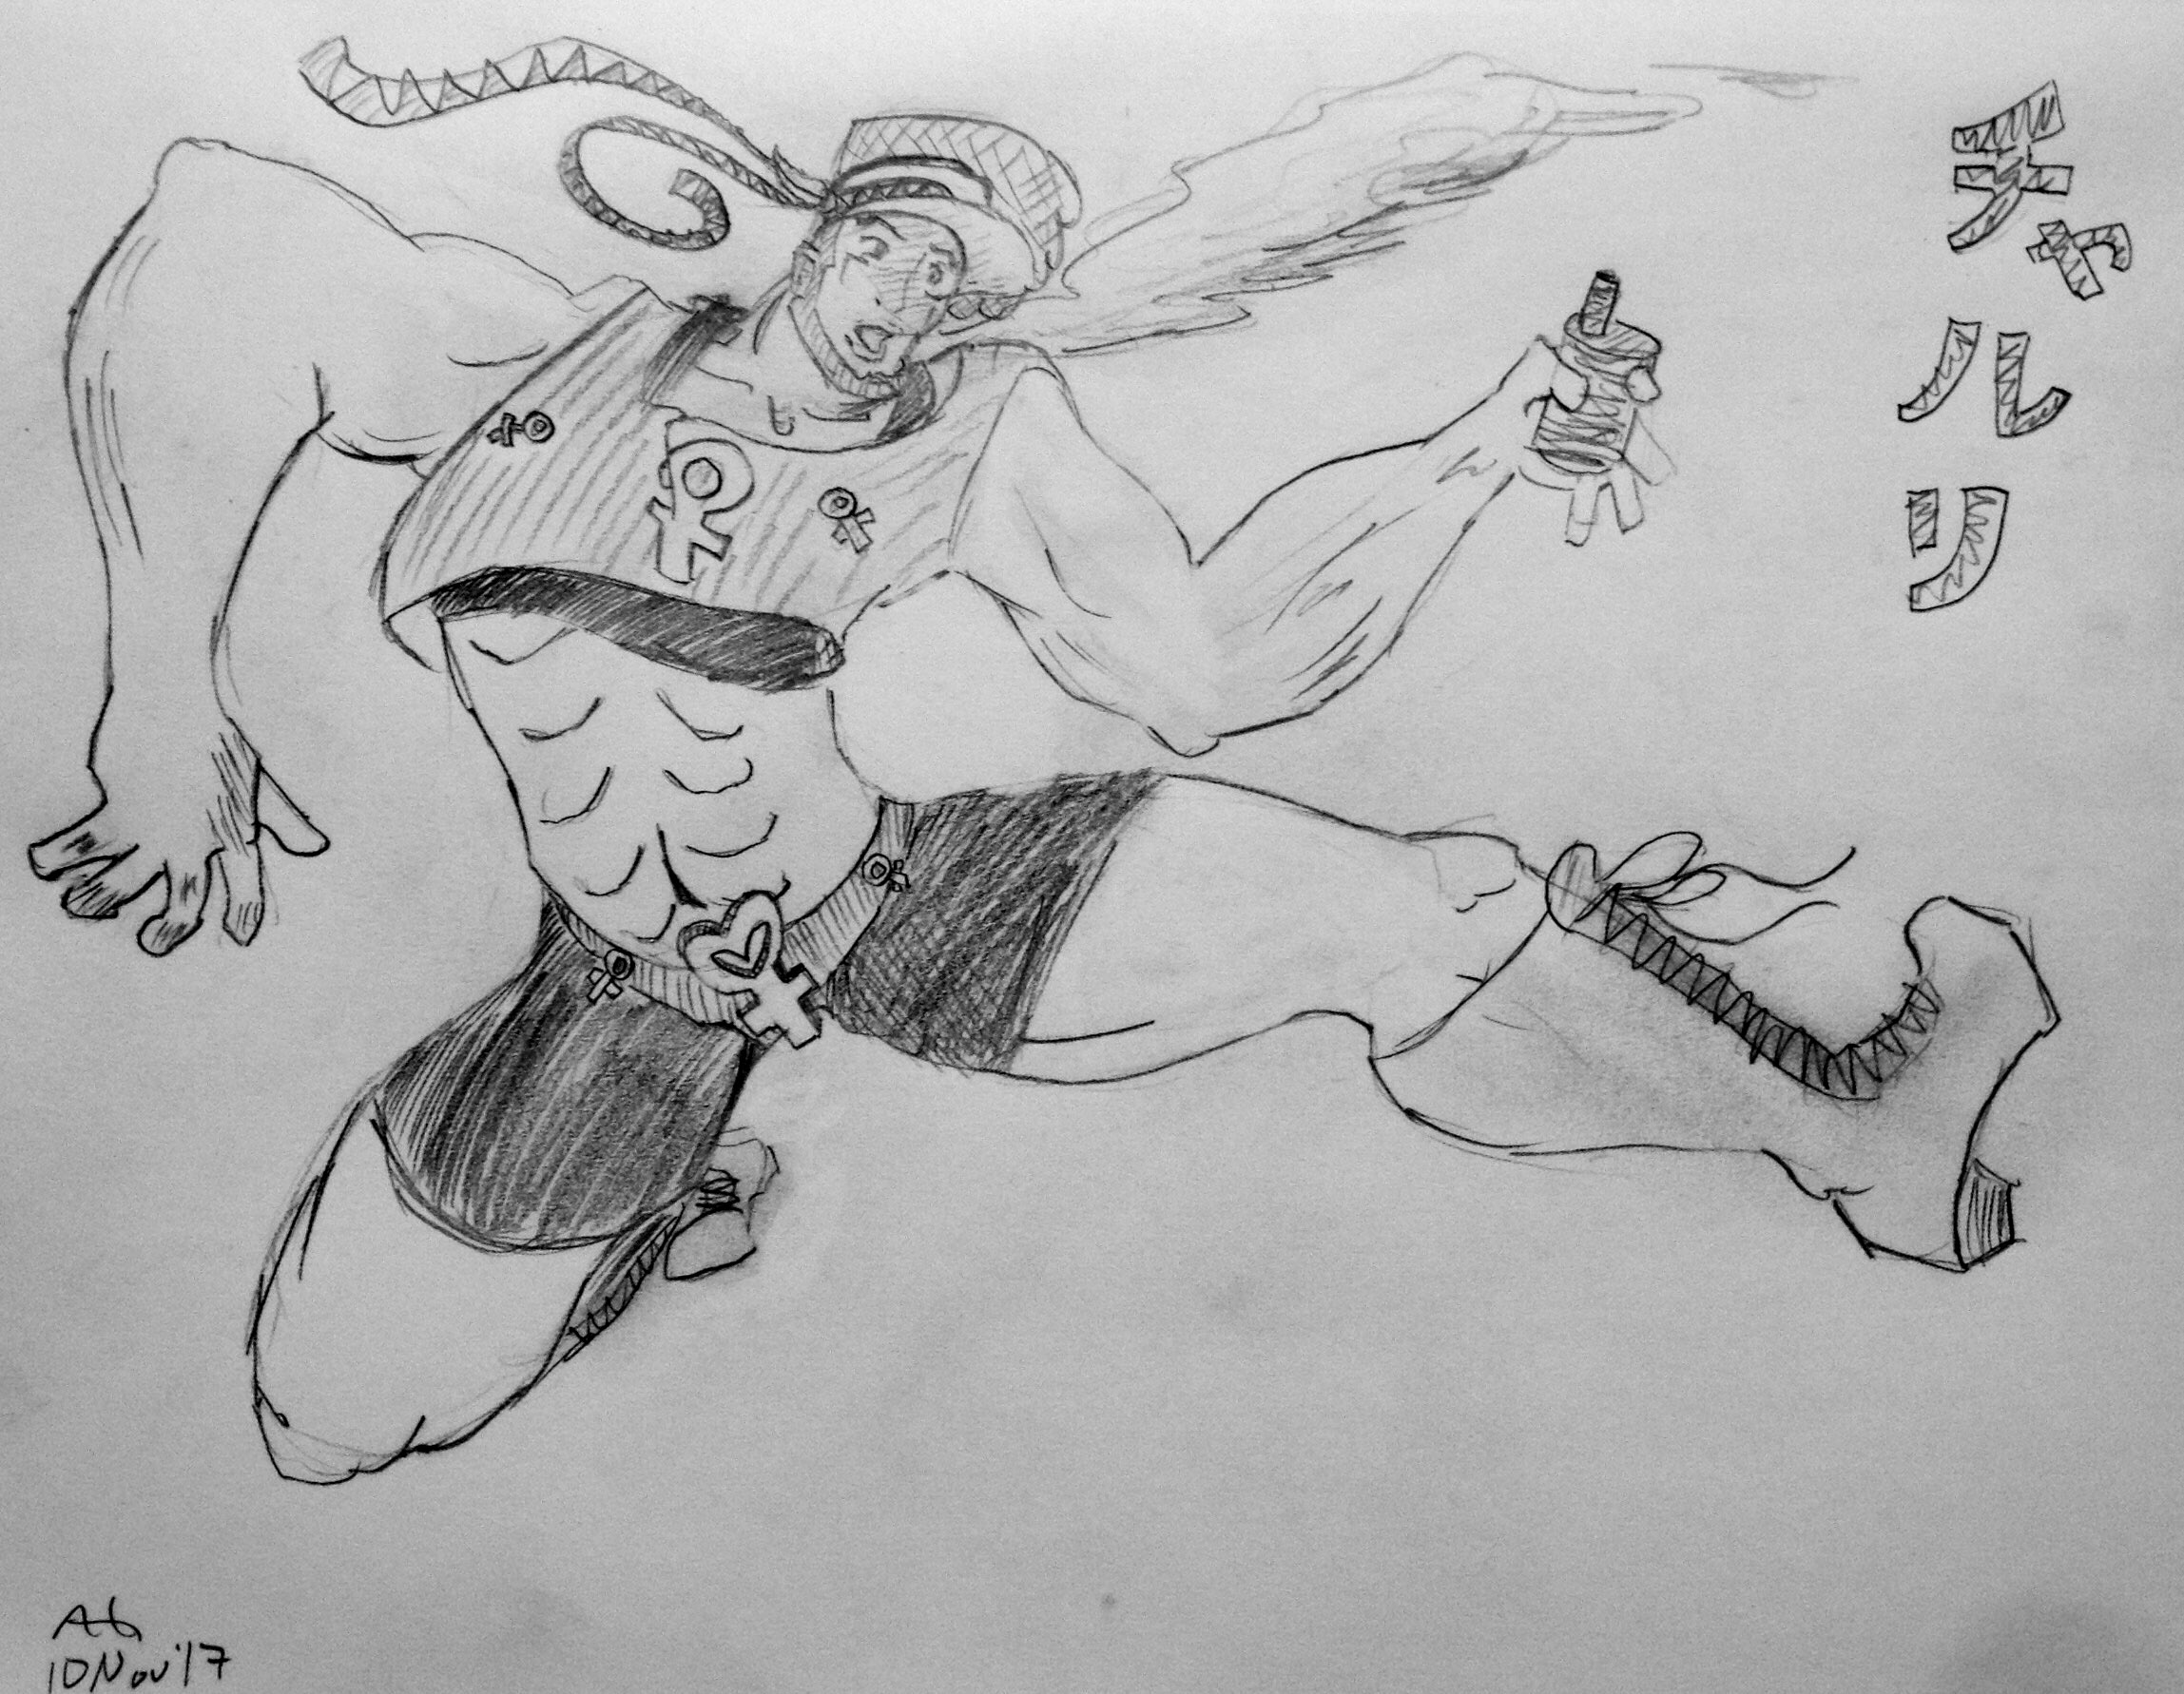 チャルリ
AG
10 Nov '17